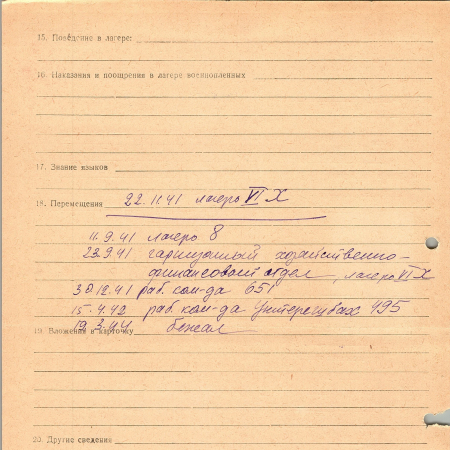 15. Поведение в лагере:
16. Наказания и поощрения в лагере военнопленных
17. Знание языков
18. Перемещения 22.11.41 лагерь VI X
11.9.41 лагерь 8
23.9.41 гарнизонный хозяйственно-
финансовый отдел, лагерь VI X
30.12.41 раб. ком-да 651
15.4.42 раб. ком-да 495
19.3.44 бежал
19. Вложения в карточку
20. Другие сведения